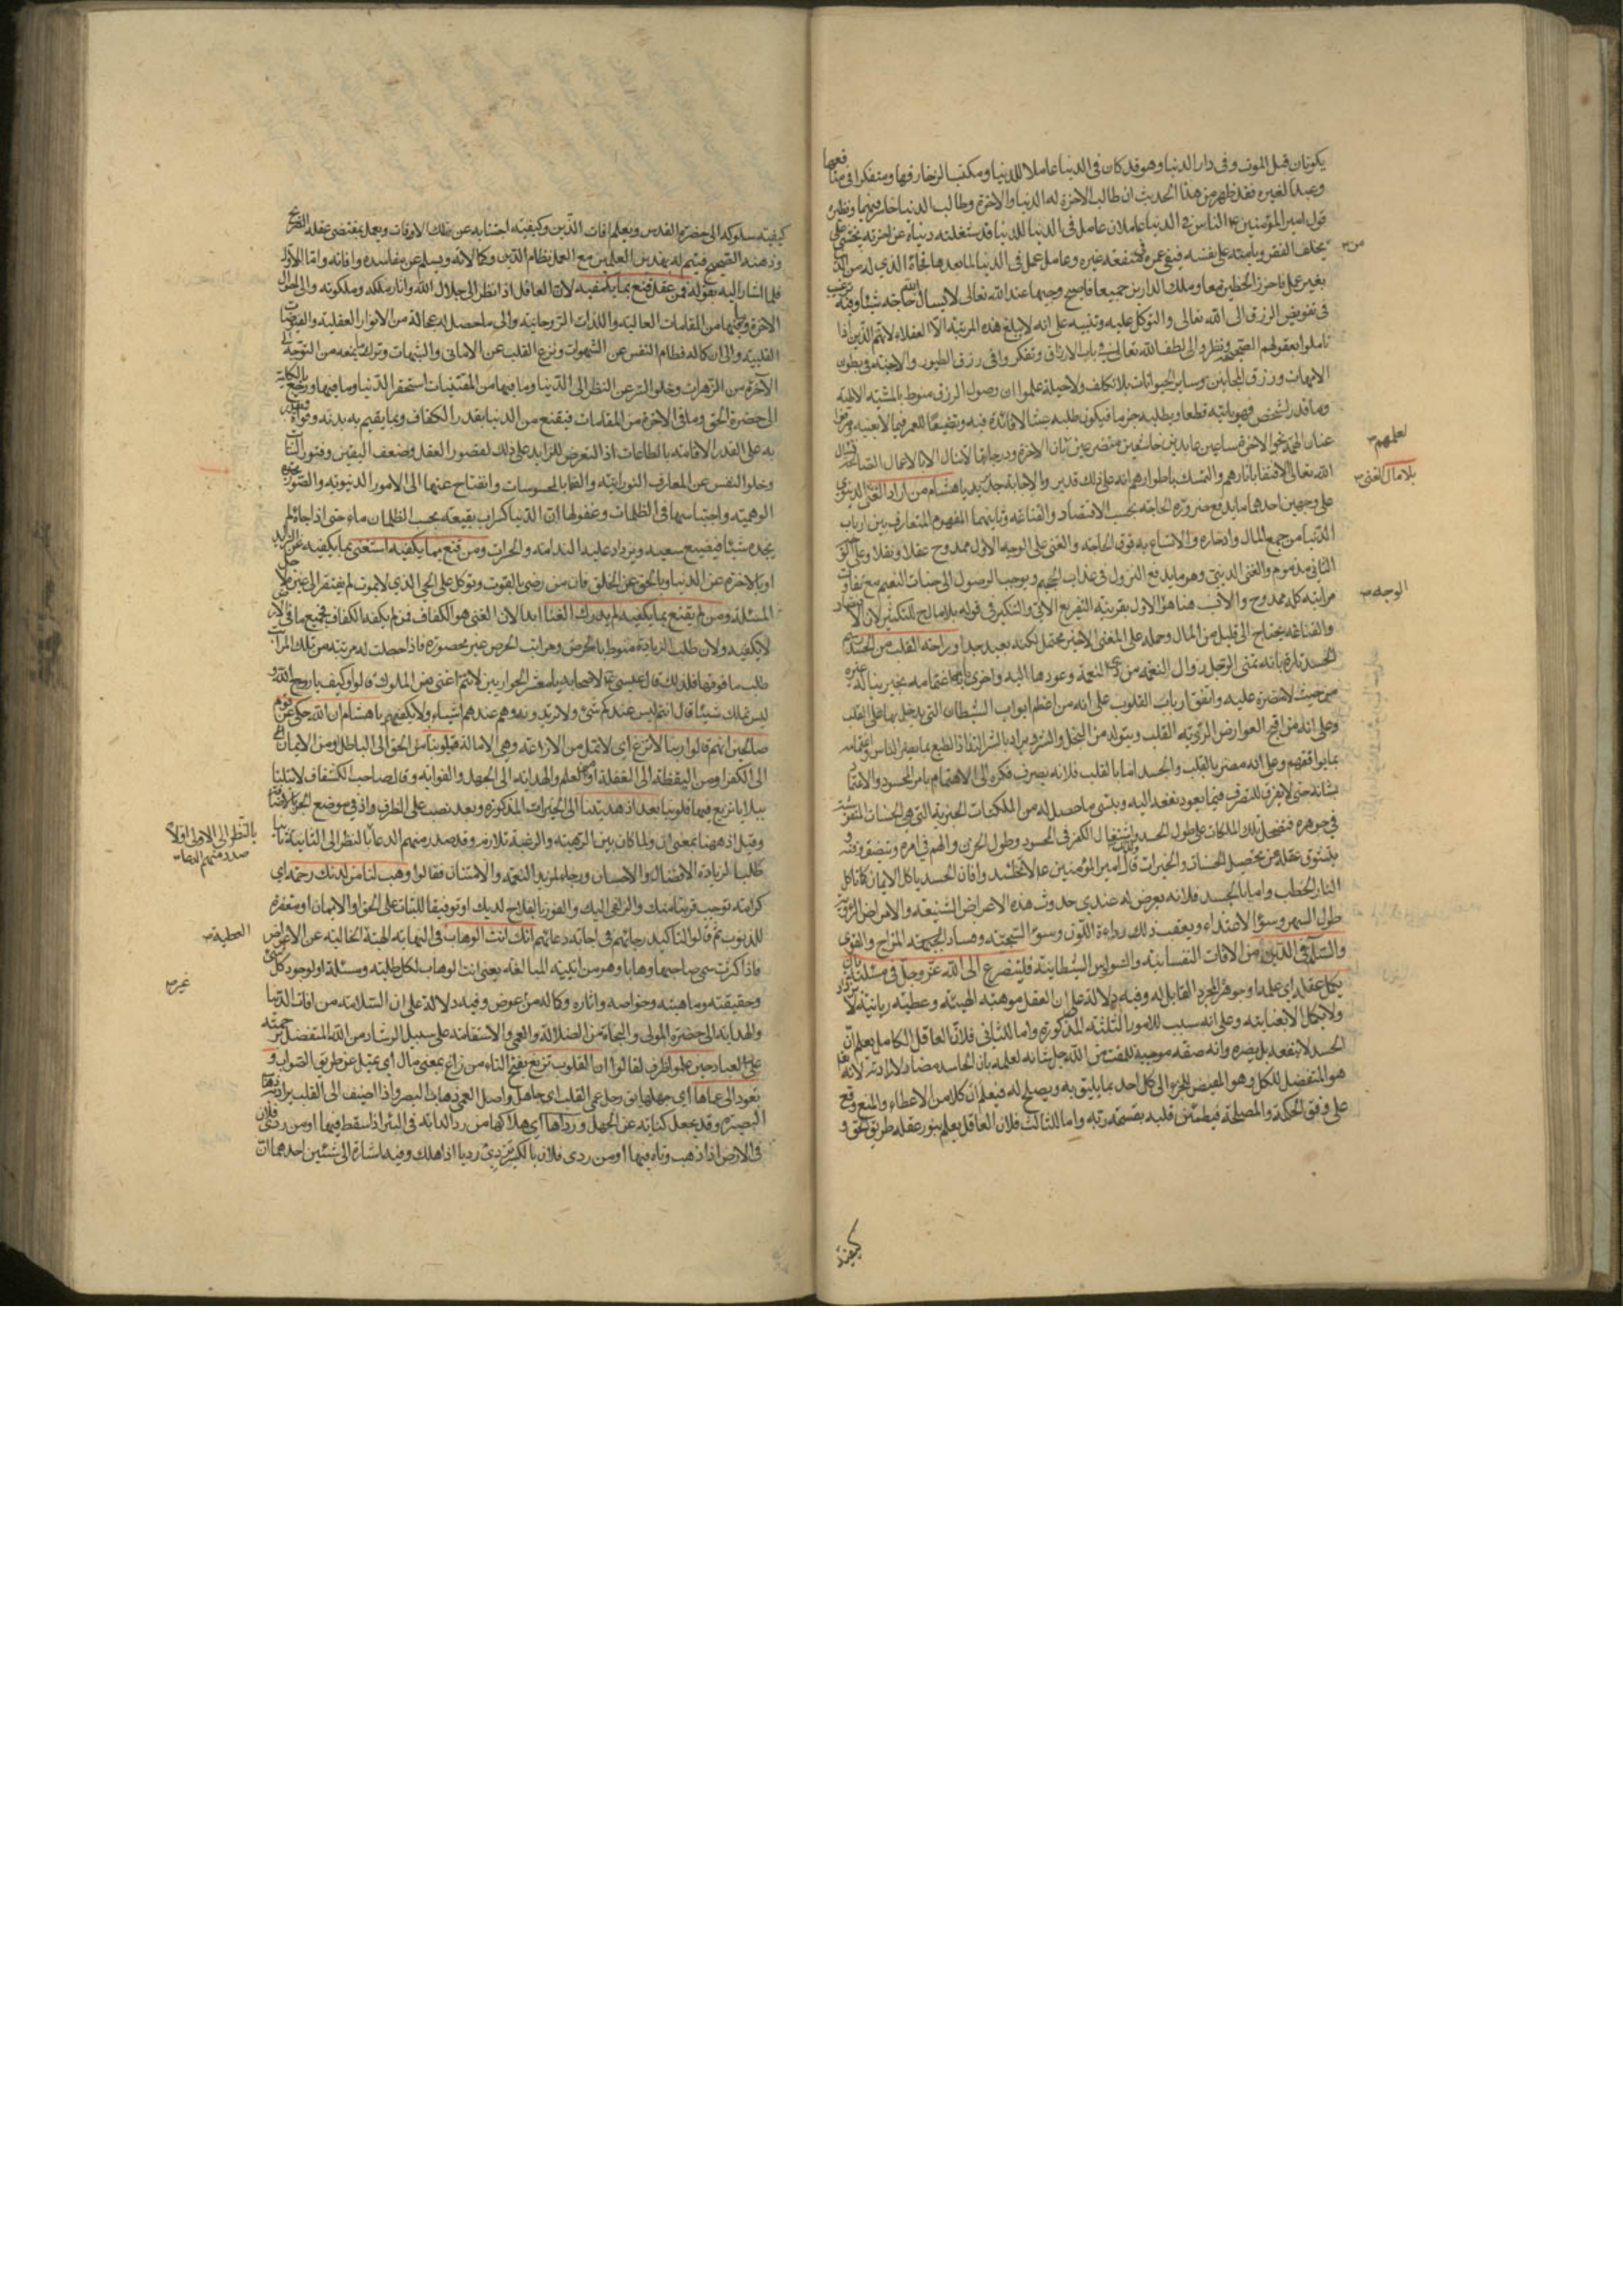 يكونان قبل الموت وفى دار الدنيا وهو قد كان فى الدنيا عاملا للدنيا ومكتسبا لزخارفها ومتفكرا فى منافعها
وعبدا لغيره فقد ظهر من هذا الحديث ان طالب الاخرة له الدنيا والاخرة وطالب الدنيا خاسر فيهما ونظيره
قول امير المؤمنين ع الناس فى الدنيا عاملان عامل فى الدنيا للدنيا قد شغلته دنياه عن اخرته يخشى على
من يخلف الفقر ويأمنه على نفسه فيفنى عمره فى منفعة غيره وعامل عمل فى الدنيا لما بعدها فجاءه الذي له من الدنيا
بغير عمل فاحرز الحظين معا وملك الدارين جميعا فاصبح وجيها عند الله تعالى لايسال الله حاجة شيئا وفيه ترغيب
فى تفويض الرزق الى الله تعالى والتوكل عليه وتنبيه على انه لايبلغ هذه المرتبة الا العقلاء لانهم الذين اذا
تاملوا بعقولهم الصحيحة ونظروا الى لطف الله تعالى فى باب الارزاق وتفكروا فى رزق الطيور والاجنة فى بطون
الامهات ورزق المجانين وساير الحيوانات بلا تكلف ولاحيلة علموا ان وصول الرزق منوط بالمشية الالهية
وما قدر لشخص فهو ياتيه قطعا ويطلبه جزما فيكون طلبه عبثا لافائدة فيه وتضييعا للعمر فيما لايعنيه
عنان الهمة نحو الاخرة ساعين عابدين خاشعين متضرعين بان الاخرة ودرجاتها لاتنال الا بالاعمال الصالحة
لعلهم
الله تعالى الاقتفاء باثارهم والتمسك باطوارهم انه على ذلك قدير وبالاجابة جدير يا هشام من اراد الغنى
بلا مال الغنى
على وجهين احدهما ما يدفع ضرورة الحاجة بحسب الاقتصاد والقناعة وثانيهما المفهوم المتعارف بين ارباب
الدنيا من جمع المال وادخاره والاتساع به فوق الحاجة والغنى على الوجه الاول ممدوح عقلا ونقلا وعلى
الوجه
الثانى مذموم والغنى الدينى وهو ما يدفع النزول فى عذاب الجحيم ويوجب الوصول الى جنات النعيم مع تفاوت
مراتبه كله ممدوح والانسب هنا هو الاول بقرينة التفريع الاتى والتنكير فى قوله بلا مال للتكثير لان الاقتصاد
والقناعة يحتاج الى قليل من المال وحمله على المعنى الاخير محتمل لكنه بعيد جدا وراحة القلب من الحسد
الحسد تارة بانه تمنى الرجل زوال النعمة من ذى النعمة وعودها اليه واخرى بانه اغتمامه بخير يناله غيره
من حيث لامضرة عليه واتفق ارباب القلوب على انه من اعظم ابواب الشيطان التى يدخل بها على القلب
وعلى انه من اقبح العوارض الردية القلب ويتولد من البخل والشره
بما يوافقهم وعلى انه مضر بالقلب والجسد اما بالقلب فلانه يصرف فكره الى الاهتمام بامر المحسود والاغتمام
بشانه حتى لايفرغ للتصرف فيما يعود نفعه اليه وينسى ما حصل له من الملكات الخيرية التى هى الحسنات
فى جوهره فتضمحل تلك الملكات على طول الحسد واشتغال الفكر فى المحسود وطول الحزن والهم فى امره
عقله عن تحصيل الحسنات والخيرات قال امير المؤمنين ع لاتحاسدوا فان الحسد ياكل الايمان كما تاكل
النار الحطب واما بالجسد فلانه يعرض له عند حدوث هذه الاعراض الشنيعة والامراض
طول السهر وسوء الاغتذاء ويعقب ذلك رداءة اللون وسوء السحنة وفساد المزاج والقوى
والسلامة فى الدين من الافات النفسانية والوساوس الشيطانية فليتضرع الى الله عز وجل فى مسئلته بان
يكمل عقله اي علمه او جوهره المجرد القابل له وفيه دلالة على ان العقل موهبة الهية وعطية ربانية لا
ولايكمل الا بعنايته وعلى انه سبب للامور الثلثة المذكورة واما للثانى فلان العاقل الكامل يعلم ان
الحسد لاينفعه بل يضره وانه صفة موجبة للمقت من الله جل شانه لعلمه بان الحاسد مضاد لارادته لانه
هو المتفضل للكل وهو المفيض للخير الى كل احد بما يليق به ويصلح له فيعلم ان كلا من الاعطاء والمنع وقع
على وفق الحكمة والمصلحة فيطمئن قلبه بقسمة ربه واما للثالث فلان العاقل يعلم بنور عقله طريق الحق و
كيفية
كيفية سلوكه الى حضرة القدس ويعلم افات الدين وكيفية اجتنابه عن تلك الافات ويعمل بمقتضى عقله الصريح
وذهنه الصحيح فيتم له بهذين العلمين مع العمل نظام الدين وكمالاته ويسلم عن مفاسده وافاته واما الاول
فلما اشار اليه بقوله فمن عقل قنع بما يكفيه لان العاقل اذا نظر الى جلال الله واثار ملكه وملكوته والى احوال
الاخرة وما فيها من المقامات العالية واللذات الروحانية والى ما حصل له عجالة من الانوار العقلية والفيوضات
القلبية والى ان كماله فطام النفس عن الشهوات ونزع القلب عن الامانى والشبهات وترك ما يمنعه من التوجه الى
الاخرة من الزهرات وخلو السر عن النظر الى الدنيا وما فيها من المقتنيات استحقر الدنيا وما فيها ورجع بالكلية
الى حضرة الحق وما فى الاخرة من المقامات فيقنع من الدنيا بقدر الكفاف وبما يقيم به بدنه وقواه
به على القدر الاقامة بالطاعات اذ التعرض للزايد على ذلك لقصور العقل وضعف اليقين وفتور
وخلو النفس عن المعارف النورانية والفها بالمحسوسات وانفتاح عينها الى الامور الدنيوية والصور
الوهمية واحتباسها فى الظلمات وغفولها ان الدنيا كسراب بقيعة يحسبه الظمان ماء حتى اذا جاءه لم
يجده شيئا فيضيع سعيه ويزداد عليه الندامة والحسرات ومن قنع بما يكفيه استغنى بما يكفيه عن الزايد
او بالاخرة عن الدنيا وبالحق عن الخلق فان من رضى بالقوت وتوكل على الحي الذي لايموت لم يفتقر الى غيره
المسئلة ومن لم يقنع بما يكفيه لم يدرك الغنا ابدا لان الغنى هو الكفاف فمن لم يكفه الكفاف فجميع ما فى الارض
لايكفيه ولان طلب الزيادة منوط بالحرص ومراتب الحرص غير محصورة فاذا حصلت له مرتبة من تلك المراتب
طلب ما فوقها فلذلك قال عيسى ع لاصحابه يا معشر الحواريين لانتم اغنى من الملوك قالوا وكيف يا روح الله و
ليس نملك شيئا قال انتم ليس عندكم شئ ولاتريدونه وهم عندهم اشياء ولايكفيهم يا هشام ان الله حكى عن قوم
صالحين انهم قالوا ربنا لاتزغ اي لاتمل من الازاغة وهي الامالة قلوبنا من الحق الى الباطل ومن الايمان
الى الكفر او من اليقظة الى الغفلة او من العلم والهداية الى الجهل والغواية وقال صاحب الكشاف لاتبلنا
ببلايا تزيغ فيها قلوبنا بعد اذ هديتنا الى الخيرات المذكورة وبعد نصب على الظرف واذ فى موضع الجر باضافته
وقيل اذ ههنا بمعنى ان ولما كان بين الرهبة والرغبة تلازم وقد صدر منهم الدعاء بالنظر الى الثانية ثانيا
بالنظر الى الاولى اولا
صدر منهم الدعاء
طلبا لزيادة الافضال والاحسان ورجاء لمزيد النعمة والامتنان فقالوا وهب لنا من لدنك رحمة اي
كرامة توجب قربنا منك والزلفى اليك والفوز بالفلاح لديك او توفيقا للثبات على الحق او الايمان او مغفرة
للذنوب ثم قالوا لتاكيد رجائهم فى اجابة دعائهم انك انت الوهاب فى النهاية الهبة الخالية عن الاعواض
العطية
فاذا كثرت سمي صاحبها وهابا وهو من ابنية المبالغة يعنى انت الوهاب لكل طلبة ومسئلة او لوجود كل شئ
وحقيقته وماهيته وخواصه واثاره وكماله من عوض وفيه دلالة على ان السلامة من افات الدنيا
غير
والهداية الى حضرة المولى والنجاة من الضلالة والعمى والاستقامة على سبيل الرشاد من الله المتفضل برحمته
على العباد حين علموا ظرف لقالوا ان القلوب تزيغ بفتح التاء من زاغ بمعنى مال اي تميل عن طريق الصواب و
تعود الى عماها اي جهلها يق رجل عمى القلب اي جاهل واصل العمى ذهاب البصر واذا اضيف الى القلب يراد ذهاب
البصيرة وقد يجعل كناية عن الجهل ورداها اي هلاكها من ردا الدابة فى البئر اذا سقط فيها او من ردى فلان
فى الارض اذا ذهب وتاه فيها او من ردى فلان بالكسر يردى رديا اذا هلك وفيه اشارة الى شيئين احدهما ان